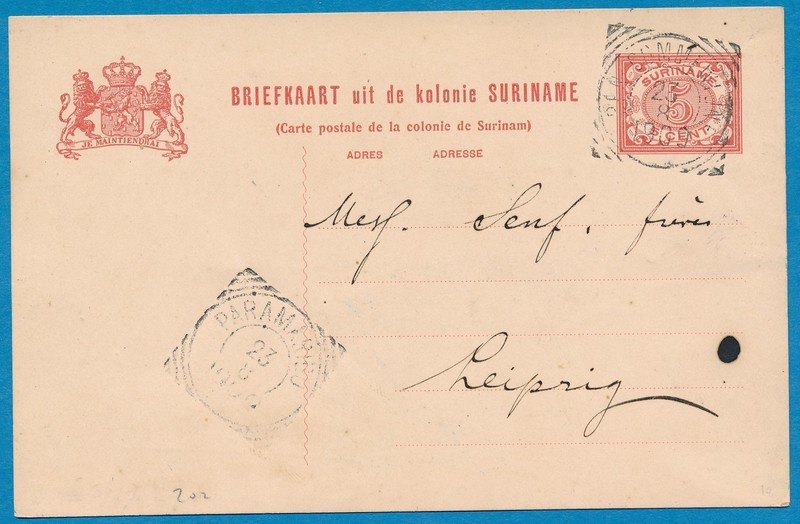 JE MAINTIENDRAI
BRIEFKAART uit de kolonie SURINAME
(Carte postale de la colonie de Surinam)
ADRES ADRESSE
SURINAME
5
CENT
1909
Messf. Senf. frères
Leipzig
PARAMARIBO
23
8
202